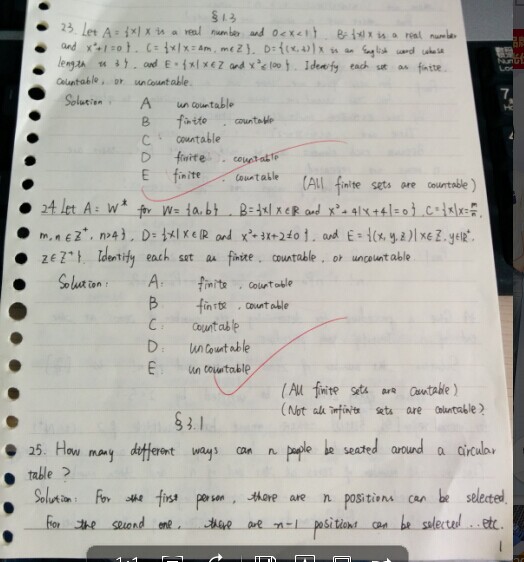 §1.3
23. Let A = {x | x is a real number and 0<x<1}, B = {x | x is a real number
and x²+1=0}, C = {x | x=4m, m∈Z}, D = {(x, 3) | x is an English word whose
length is 3}, and E = {x | x∈Z and x²≤100}. Identify each set as finite,
countable, or uncountable.
Solution: A uncountable
B finite, countable
C countable
D finite, countable
E finite, countable
(All finite sets are countable)
24. Let A = W* for W = {a, b}, B = {x | x∈R and x²+41x+41=0}, C = {x | x=m/n,
m, n∈Z⁺, n≥4}, D = {x | x∈R and x²+3x+2≠0}, and E = {(x, y, z) | x∈Z, y∈R⁺,
z∈Z⁺}. Identify each set as finite, countable, or uncountable
Solution: A: finite, countable
B: finite, countable
C: countable
D: uncountable
E: uncountable
(All finite sets are countable)
(Not all infinite sets are countable?
§3.1
25. How many different ways can n people be seated around a circular
table?
Solution: For the first person, there are n positions can be selected.
For the second one, there are n-1 positions can be selected .. etc.
1